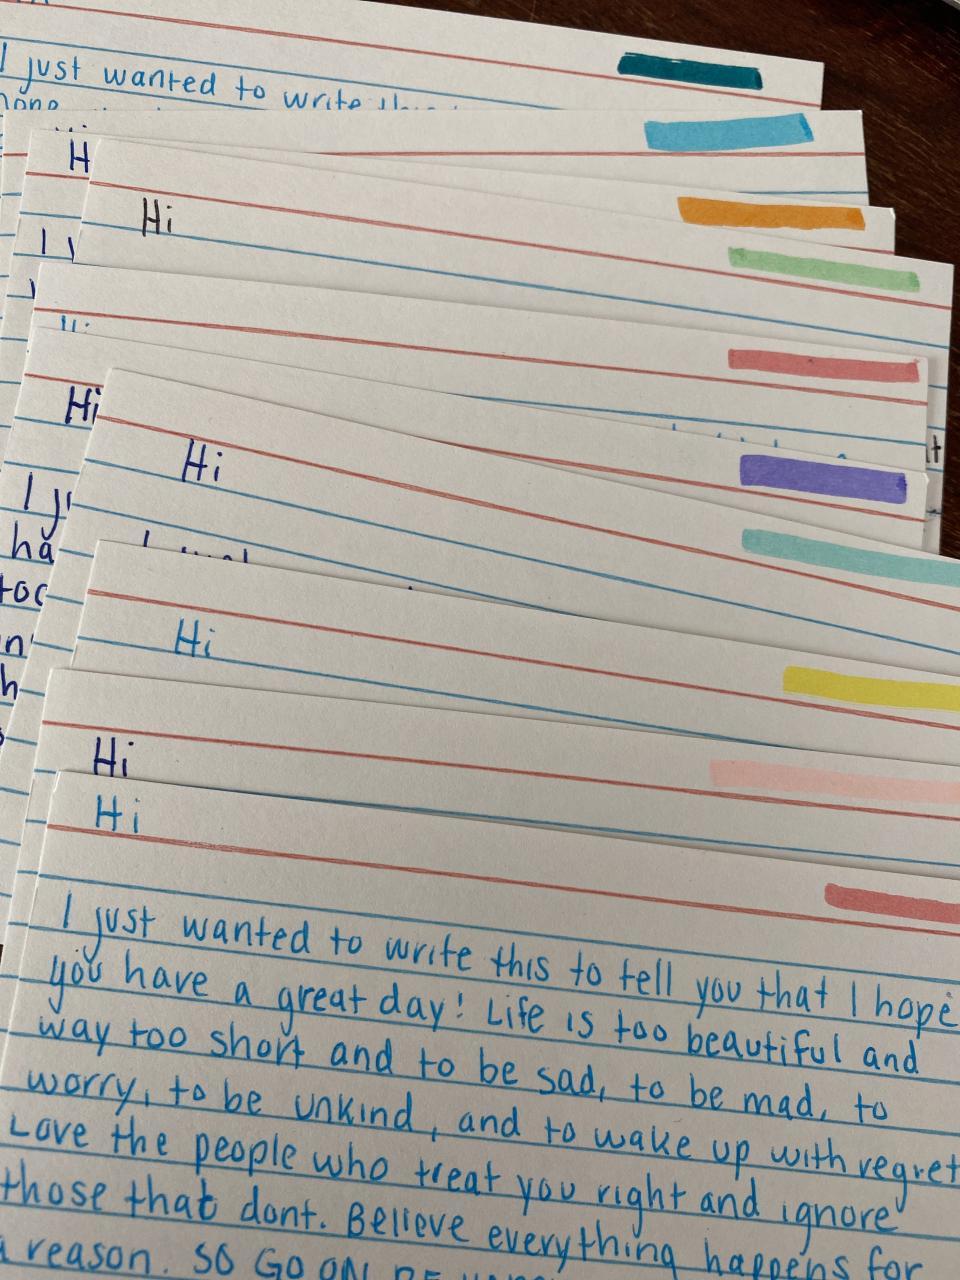 I just wanted to write
H
Hi
Hi
I j
ha
Hi
Hi
Hi
Hi
I just wanted to write this to tell you that I hope
you have a great day! Life is too beautiful and
way too short and to be sad, to be mad, to
worry, to be unkind, and to wake up with regret
Love the people who treat you right and ignore
those that dont. Believe everything happens for
a reason. SO GO ON